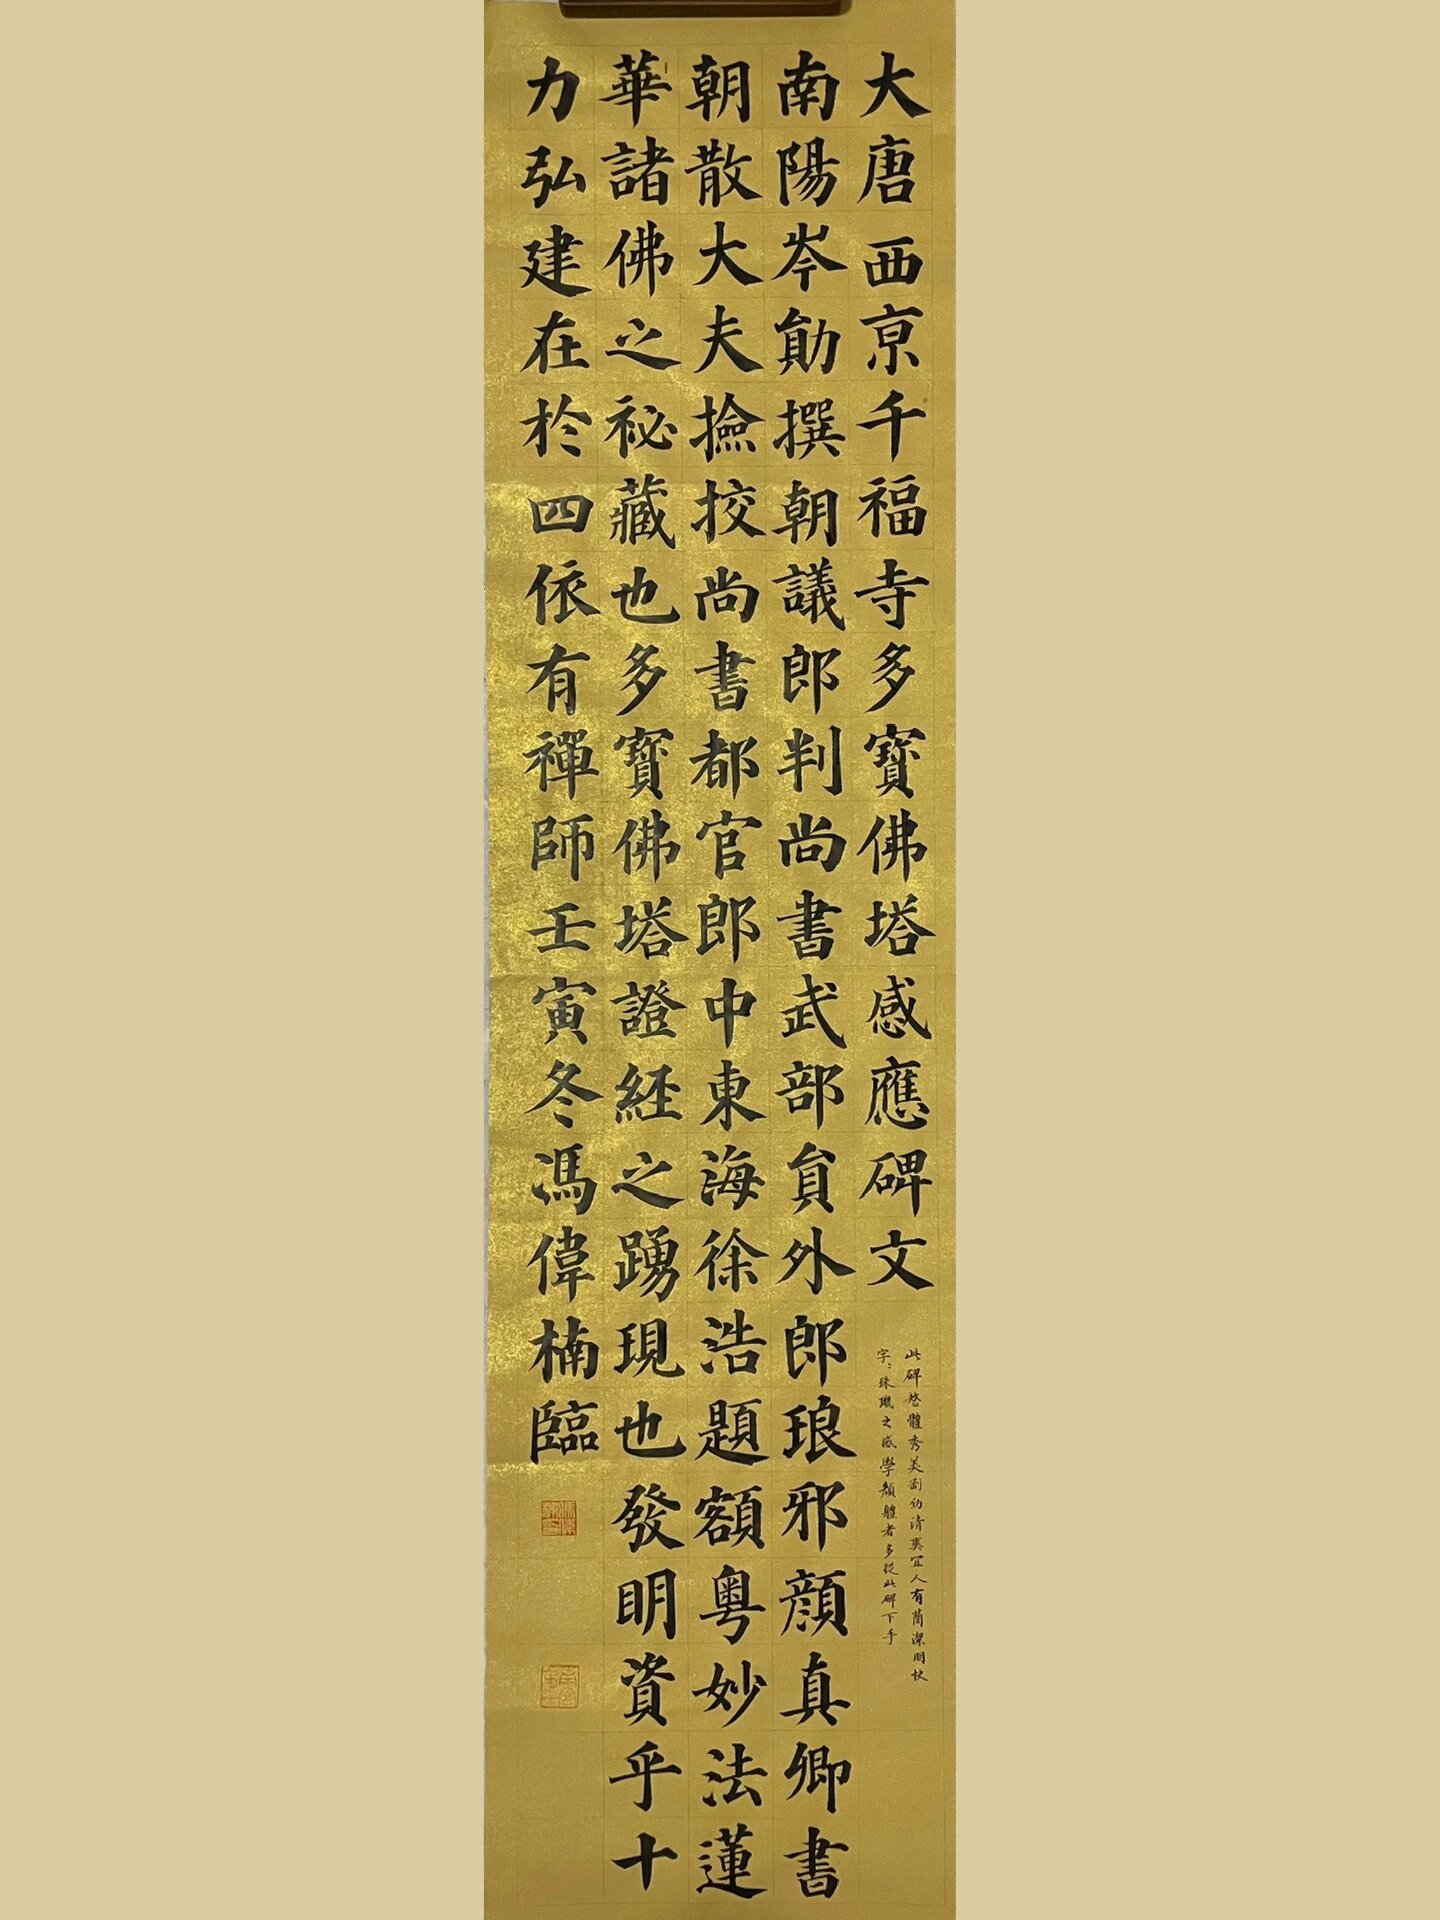 大唐西京千福寺多寶佛塔感應碑文
此碑整體秀美剛勁清爽宜人有簡潔明快
字〻珠璣之感學顏體者多從此碑下手
南陽岑勛撰朝議郎判尚書武部員外郎琅邪顏真卿書
朝散大夫撿挍尚書都官郎中東海徐浩題額粤妙法蓮
華諸佛之祕藏也多寶佛塔證經之踴現也發明資乎十
力弘建在於四依有禪師壬寅冬馮偉楠臨